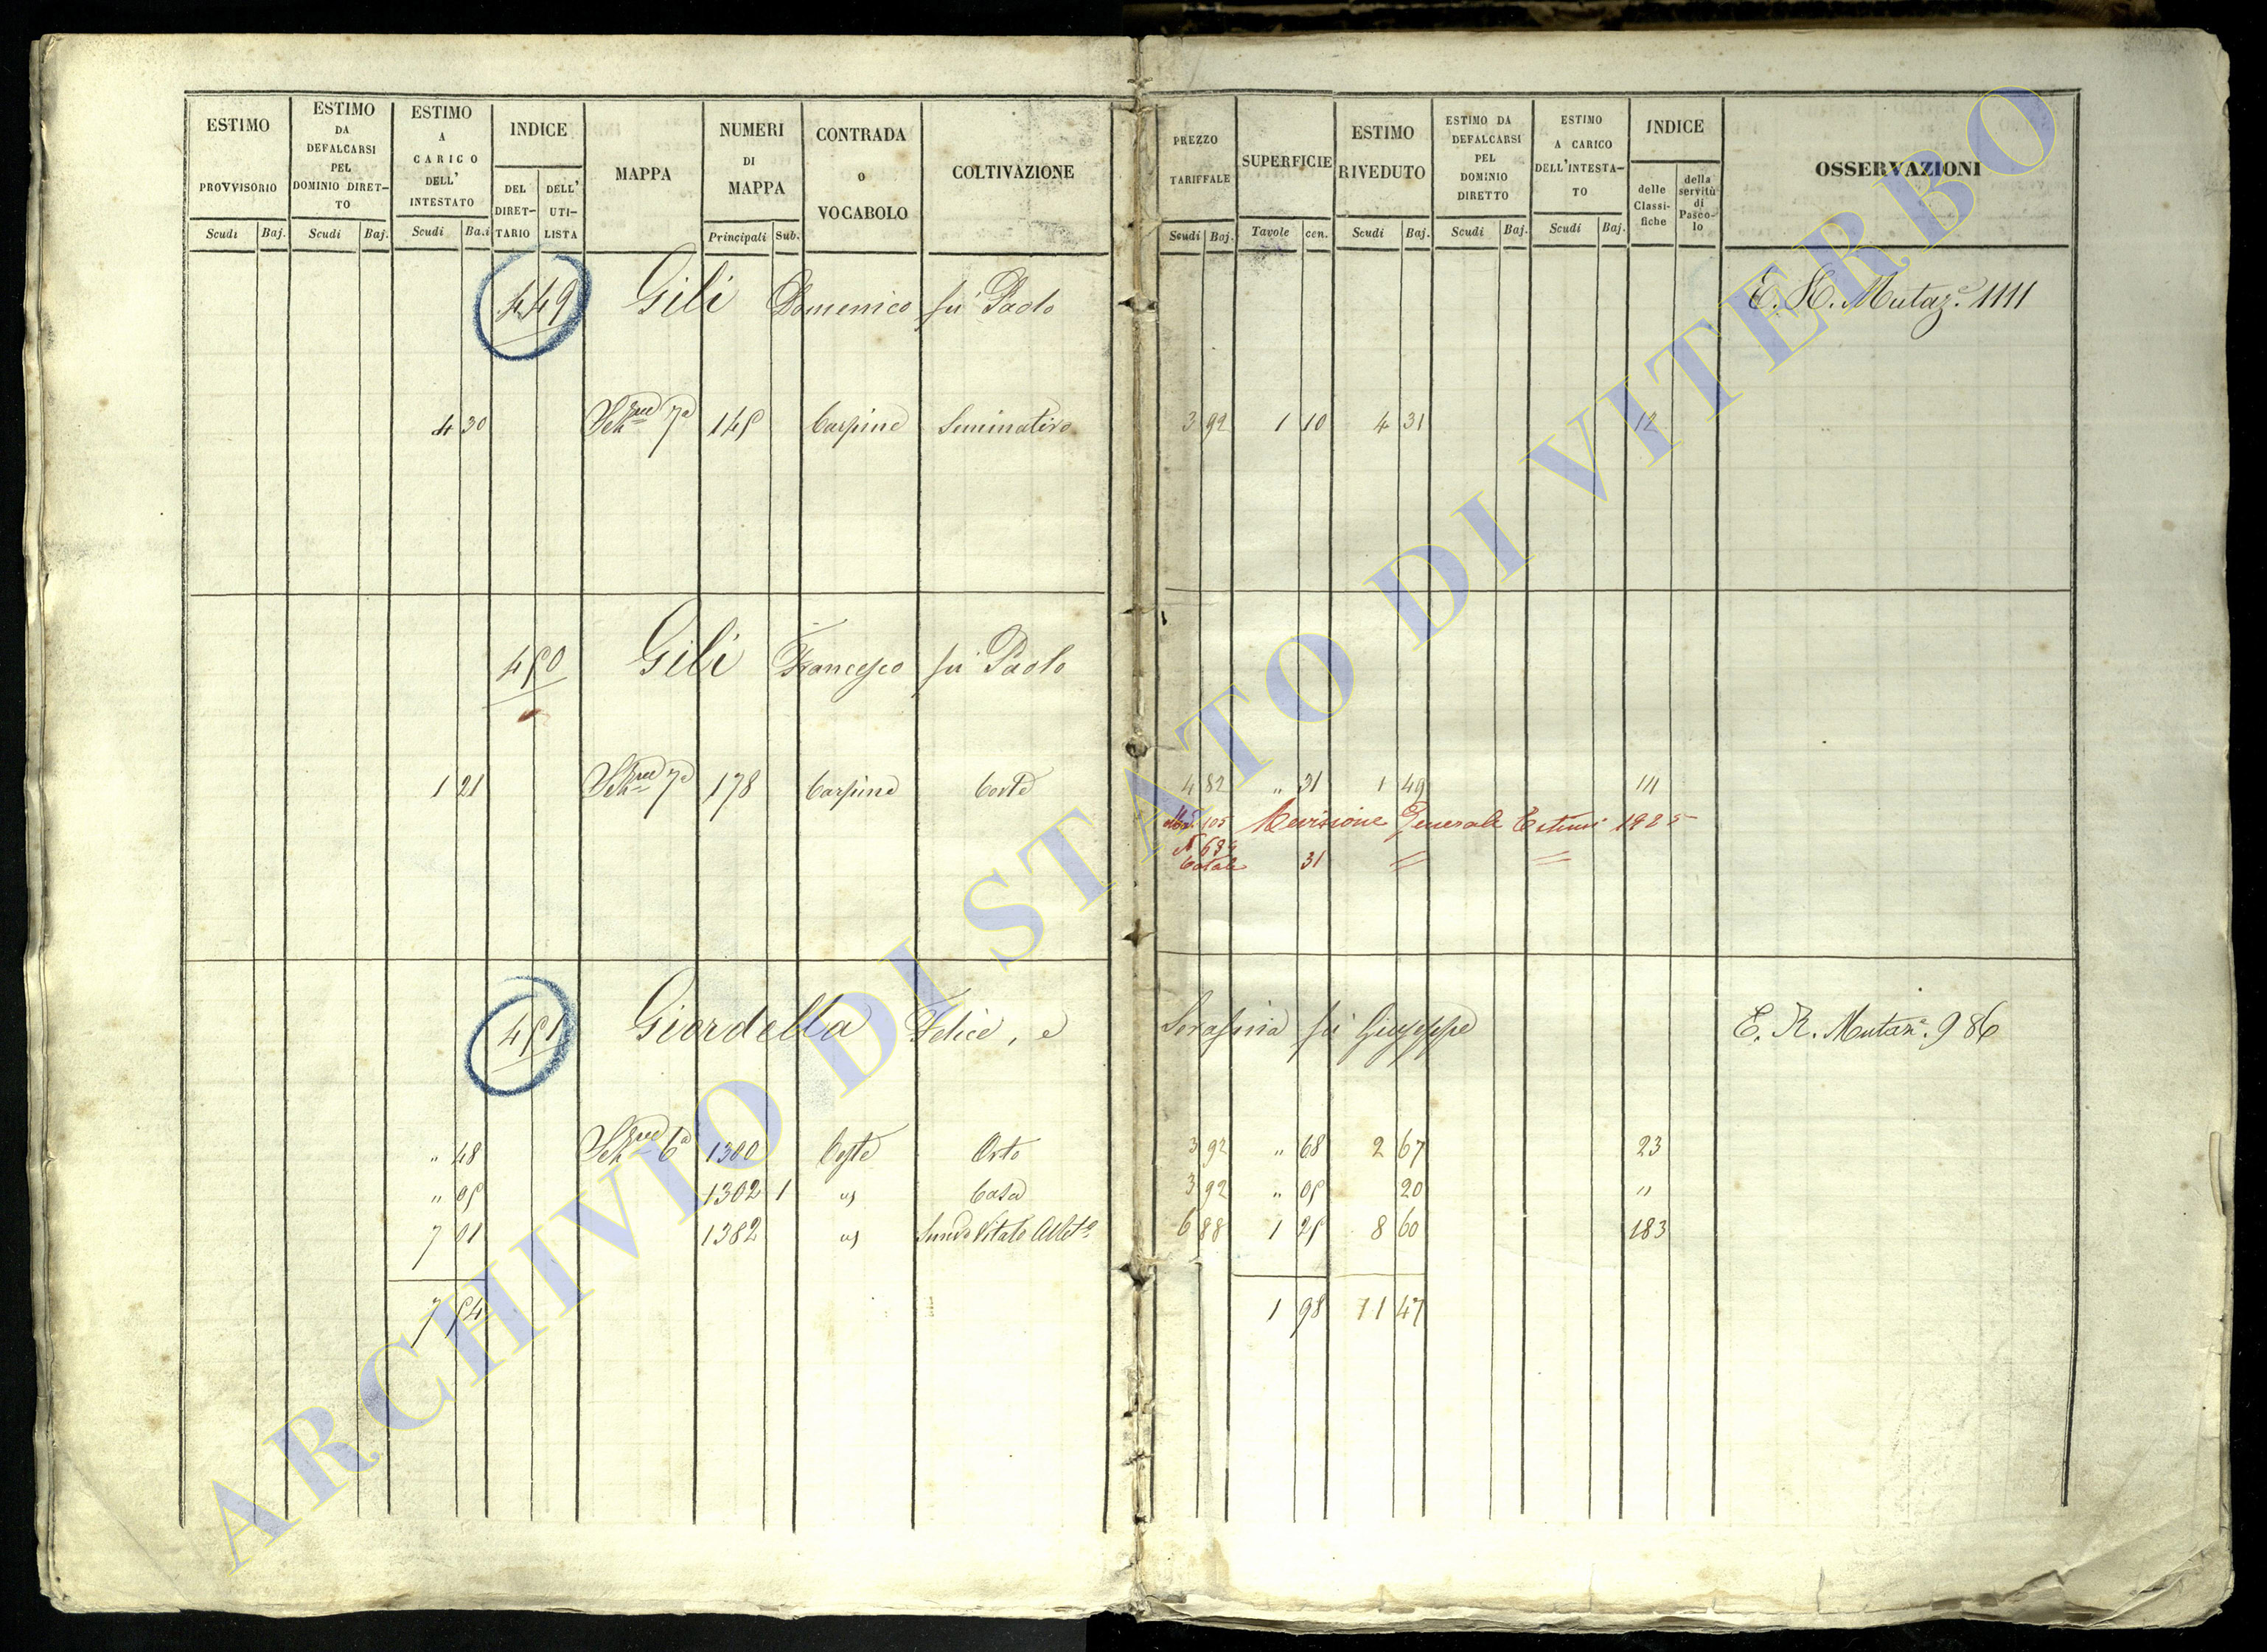 ESTIMO PROVVISORIO
Scudi Baj.
ESTIMO DA DEFALCARSI PEL DOMINIO DIRET-TO
Scudi Baj.
ESTIMO A CARICO DELL' INTESTATO
Scudi Ba.i
INDICE
DEL DIRET-TARIO
DELL' UTI-LISTA
MAPPA
NUMERI DI MAPPA
Principali Sub.
CONTRADA O VOCABOLO
COLTIVAZIONE
PREZZO TARIFFALE
Scudi Baj.
SUPERFICIE
Tavole cen.
ESTIMO RIVEDUTO
Scudi Baj.
ESTIMO DA DEFALCARSI PEL DOMINIO DIRETTO
Scudi Baj.
ESTIMO A CARICO DELL'INTESTA-TO
Scudi Baj.
INDICE
delle Classi-fiche
della servitù di Pasco-lo
OSSERVAZIONI
449 Gili Domenico fu Paolo E. R. Mutaz.e 1111
4 30 7a 145 Carpine Seminativo 3 92 1 10 4 31 12
450 Gili Francesco fu Paolo
1 21 7a 178 Carpine Corte 4 82 " 31 1 49 111
105 Revisione Generale Estimi 1925
Totale 31 = =
451 Giordella Felice, e Serafina fu Giuseppe E. R. Mutaz.e 986
" 48 6a 1300 Coste Orto 3 92 " 68 2 67 23
" 05 1302 1 as Casa 3 92 " 05 20 "
7 01 1382 as Semvo Vitato Albto 6 88 1 25 8 60 183
7 54 1 98 11 47
ARCHIVIO DI STATO DI VITERBO